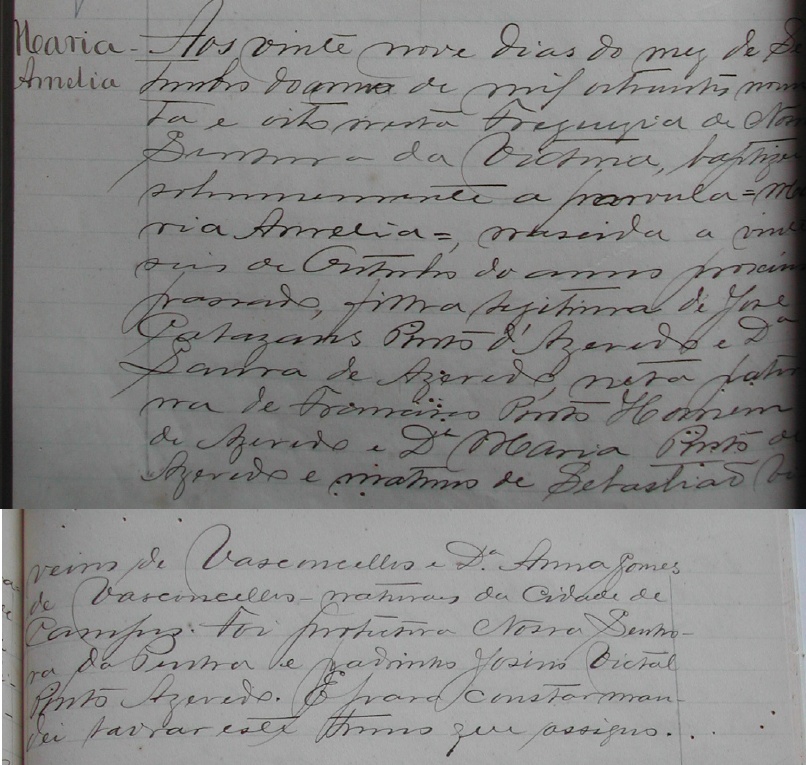 Maria
Amelia
Aos vinte nove dias do mez de Se
tembro do anno de mil oitocentos noven
ta e oito nesta Freguezia de Nossa
Senhora da Victoria, baptizei
solemnemente a parvula = Ma
ria Amelia =, nascida a vinte
seis de Outubro do anno proximo
passado, filha legitima de José
Calazans Pinto d'Azeredo e Dª
Laura de Azeredo, neta pater
na de Francisco Pinto Homem
de Azeredo e Dª Maria Pinto de
Azeredo e materno de Sebastião
de Vasconcellos e Dª Anna Gomes
de Vasconcellos - naturaes da Cidade de
Campos. Foi protectora Nossa Senho-
ra da Penha e padrinho Josino Victal
Pinto Azeredo. E para constar man-
dei lavrar este termo que assigno.